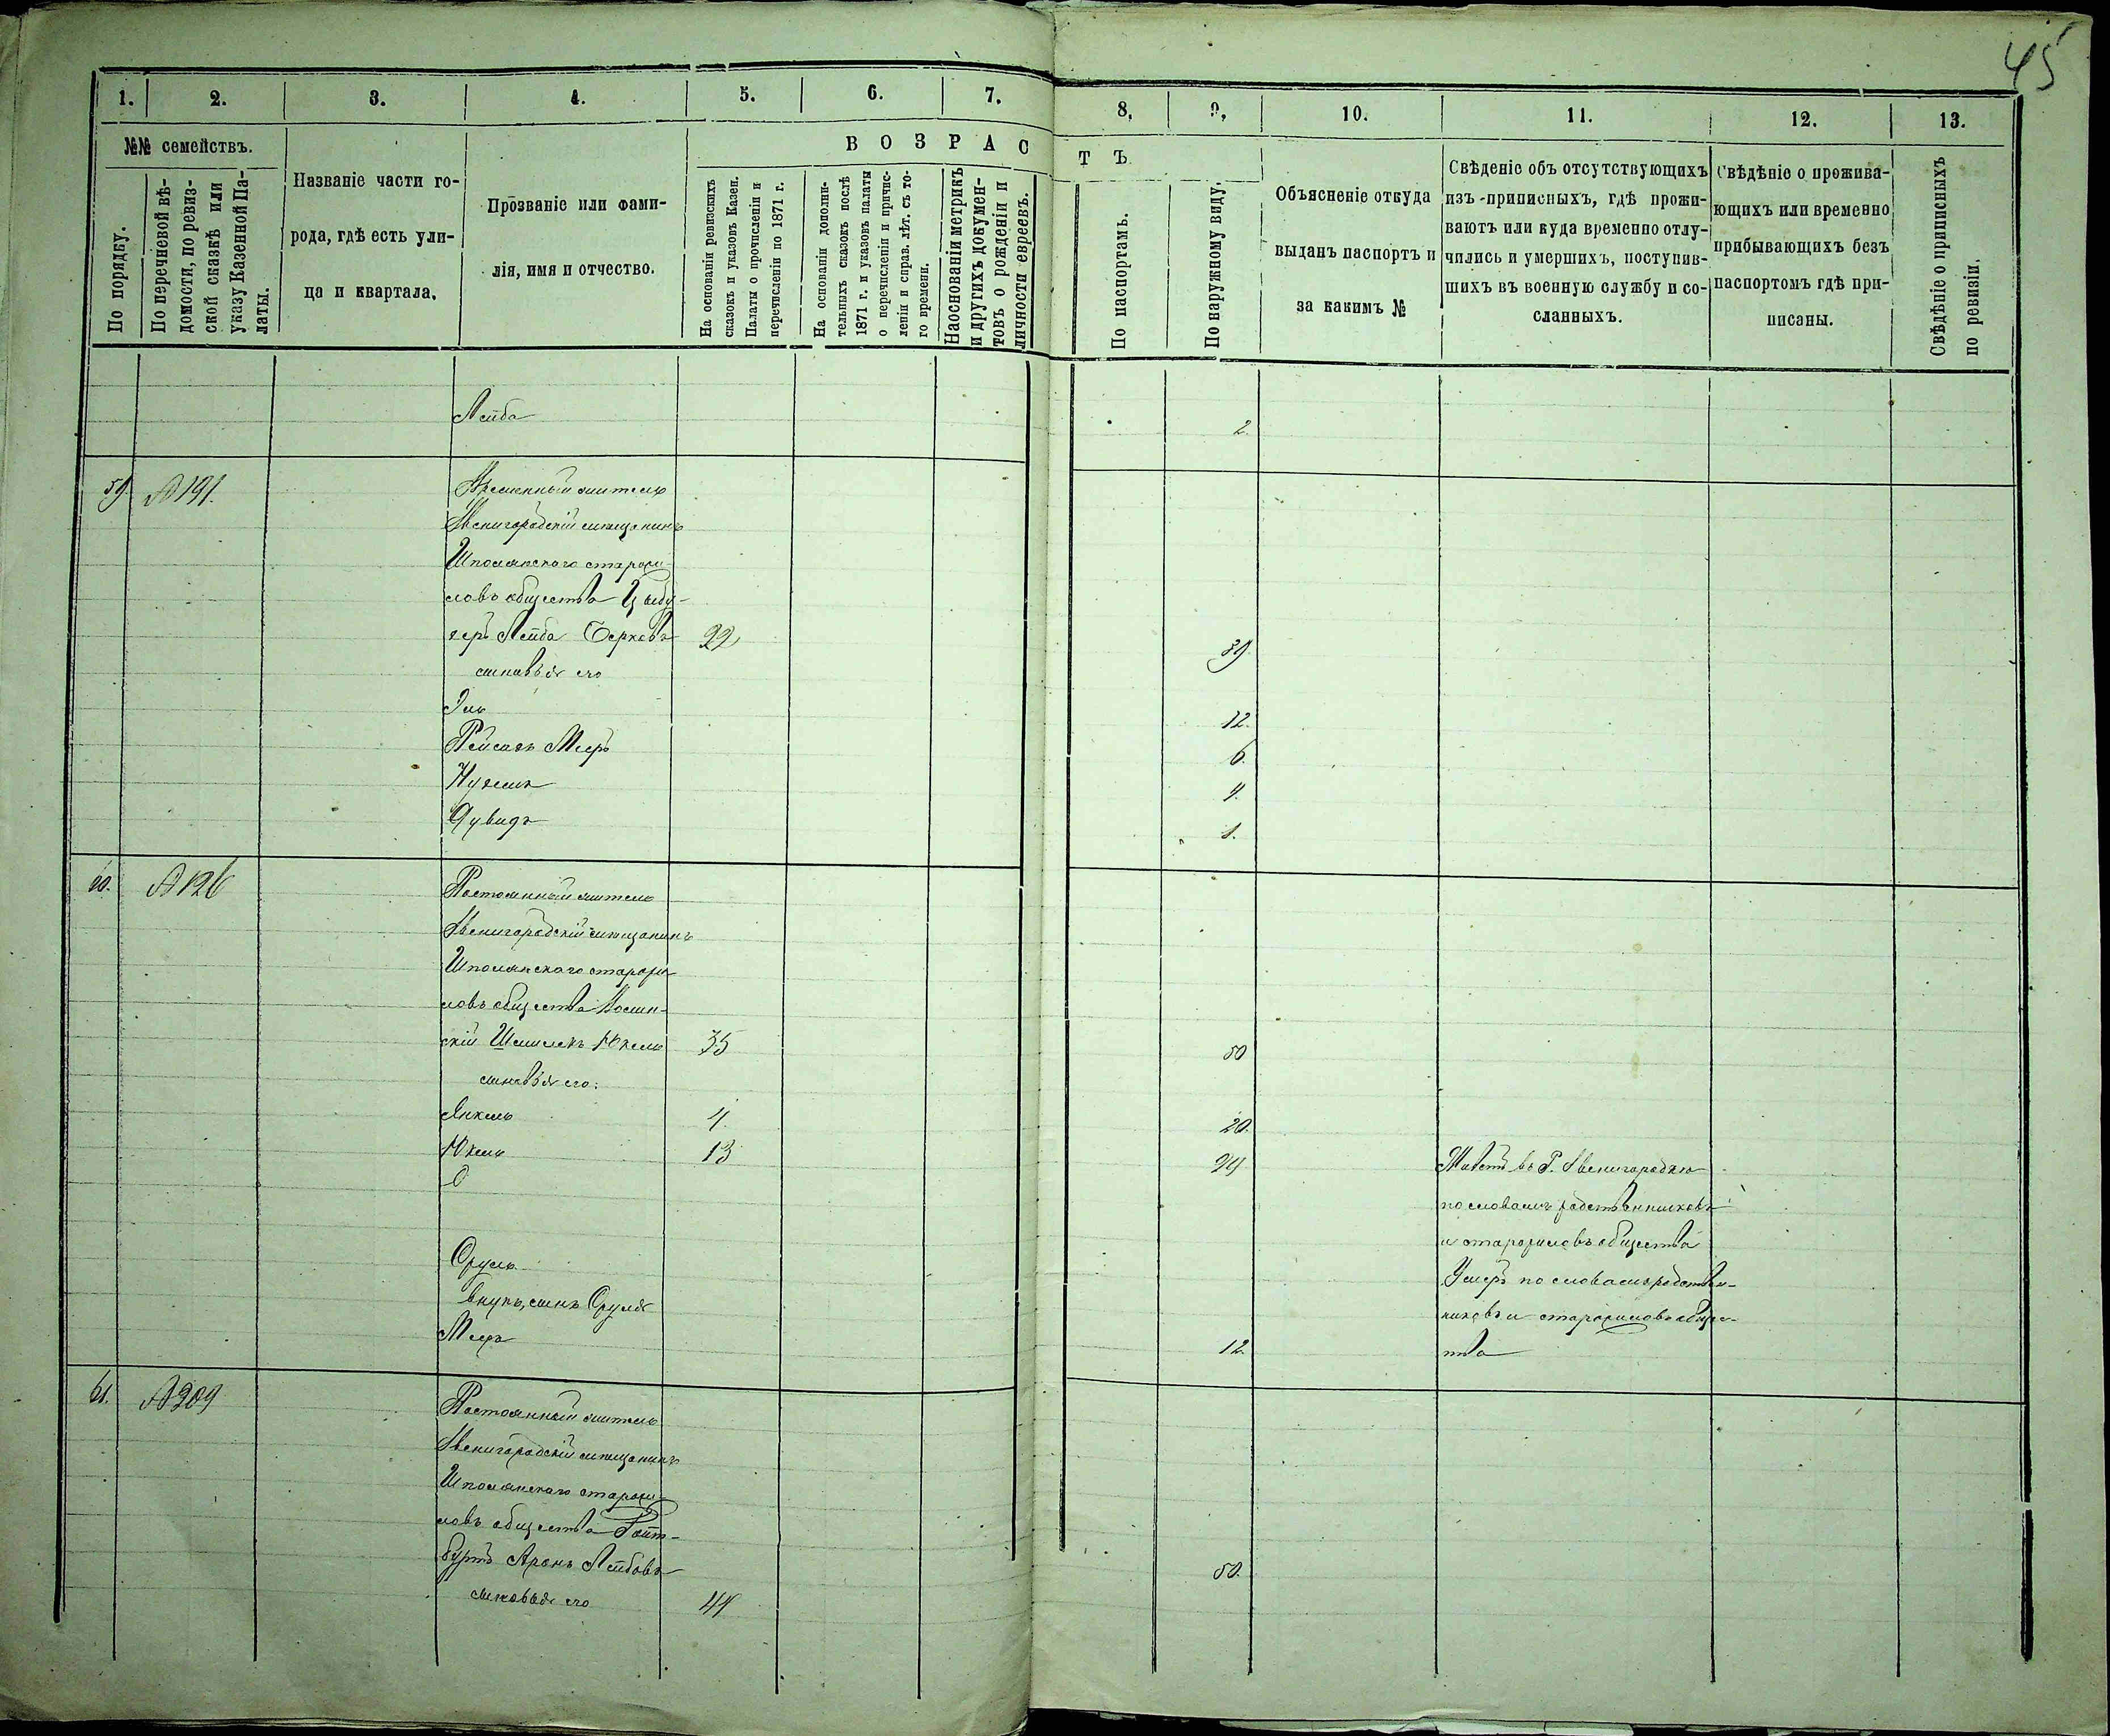 45
1. 2. 3. 4. 5. 6. 7. 8. 9. 10. 11. 12. 13.
№№ семействъ.
По порядку.
По перечневой вѣ-
домости, по ревиз-
ской сказкѣ или
указу Казенной Па-
латы.
Названіе части го-
рода, гдѣ есть ули-
ца и квартала.
Прозваніе или фами-
лія, имя и отчество.
ВОЗРАСТЪ
На основаніи ревизскихъ
сказокъ и указовъ Казен.
Палаты о прочисленіи и
перечисленіи по 1871 г.
На основаніи дополни-
тельныхъ сказокъ послѣ
1871 г. и указовъ палаты
о перечисленіи и причис-
леніи и справ. лѣт. съ то-
го времени.
На основаніи метрикъ
и другихъ докумен-
товъ о рожденіи и
личности евреевъ.
По паспортамъ.
По наружному виду.
Объясненіе откуда
выданъ паспортъ и
за какимъ №
Свѣденіе объ отсутствующихъ
изъ-приписныхъ, гдѣ прожи-
ваютъ или куда временно отлу-
чились и умершихъ, поступив-
шихъ въ военную службу и со-
сланныхъ.
Свѣдѣніе о прожива-
ющихъ или временно
прибывающихъ безъ
паспортомъ гдѣ при-
писаны.
Свѣдѣніе о приписныхъ
по ревизіи.
Лейба 2
59 №191. Временный житель
Звенигородскій мѣщанинъ
Шполянского старожи-
ловъ общества Цыбу-
леръ Лейба Берковъ 22 39
сыновья его
Эль 12.
Пейсахъ Меръ 6.
Нухемъ 4.
Дувидъ 1.
60. №126 Постоянный житель
Звенигородскій мѣщанинъ
Шполянскаго старожи
ловъ общества
скій Шмилекъ Юкель 35 50
сыновья его:
Янкель 4. 20.
Юкель 13 24 Живетъ въ Г. Звенигородкѣ
по словамъ родственниковъ
и старожиловъ общества
Сруль Умеръ по словамъ родствен-
внукъ, сынъ Сруля никовъ и старожиловъ общес-
Меръ 12. тва
61. №209 Постоянный житель
Звенигородскій мѣщанинъ
Шполянскаго старожи-
ловъ общества Ройт-
бургъ Аронъ Лейбовъ 50.
сыновья его 44